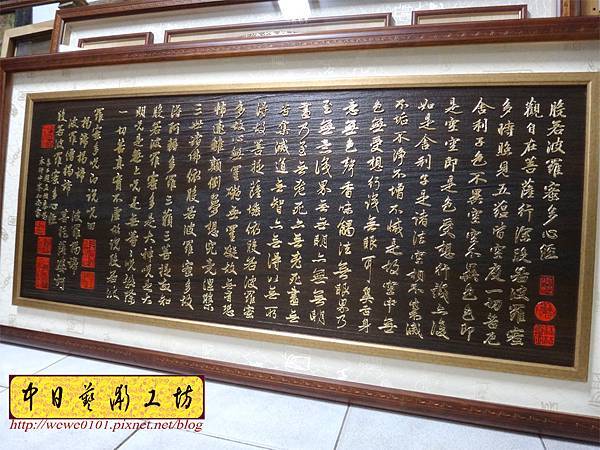 般若波羅蜜多心經
觀自在菩薩行深般若波羅蜜
多時照見五蘊皆空度一切苦厄
舍利子色不異空空不異色色即
是空空即是色受想行識亦復
如是舍利子是諸法空相不生不滅
不垢不淨不增不減是故空中無
色無受想行識無眼耳鼻舌身
意無色聲香味觸法無眼界乃
至無意識界無無明亦無無明
盡乃至無老死亦無老死盡無
苦集滅道無智亦無得以無所
得故菩提薩埵依般若波羅蜜
多故心無罣礙無罣礙故無有恐
怖遠離顛倒夢想究竟涅槃
三世諸佛依般若波羅蜜多故
得阿耨多羅三藐三菩提故知
般若波羅蜜多是大神咒是大
明咒是無上咒是無等等咒能除
一切苦真實不虛故說般若波
羅蜜多咒即說咒曰
揭諦揭諦 波羅揭諦
波羅僧揭諦 菩提薩婆訶
般若波羅蜜多心經
中日藝術工坊
http://wewe0101.pixnet.net/blog